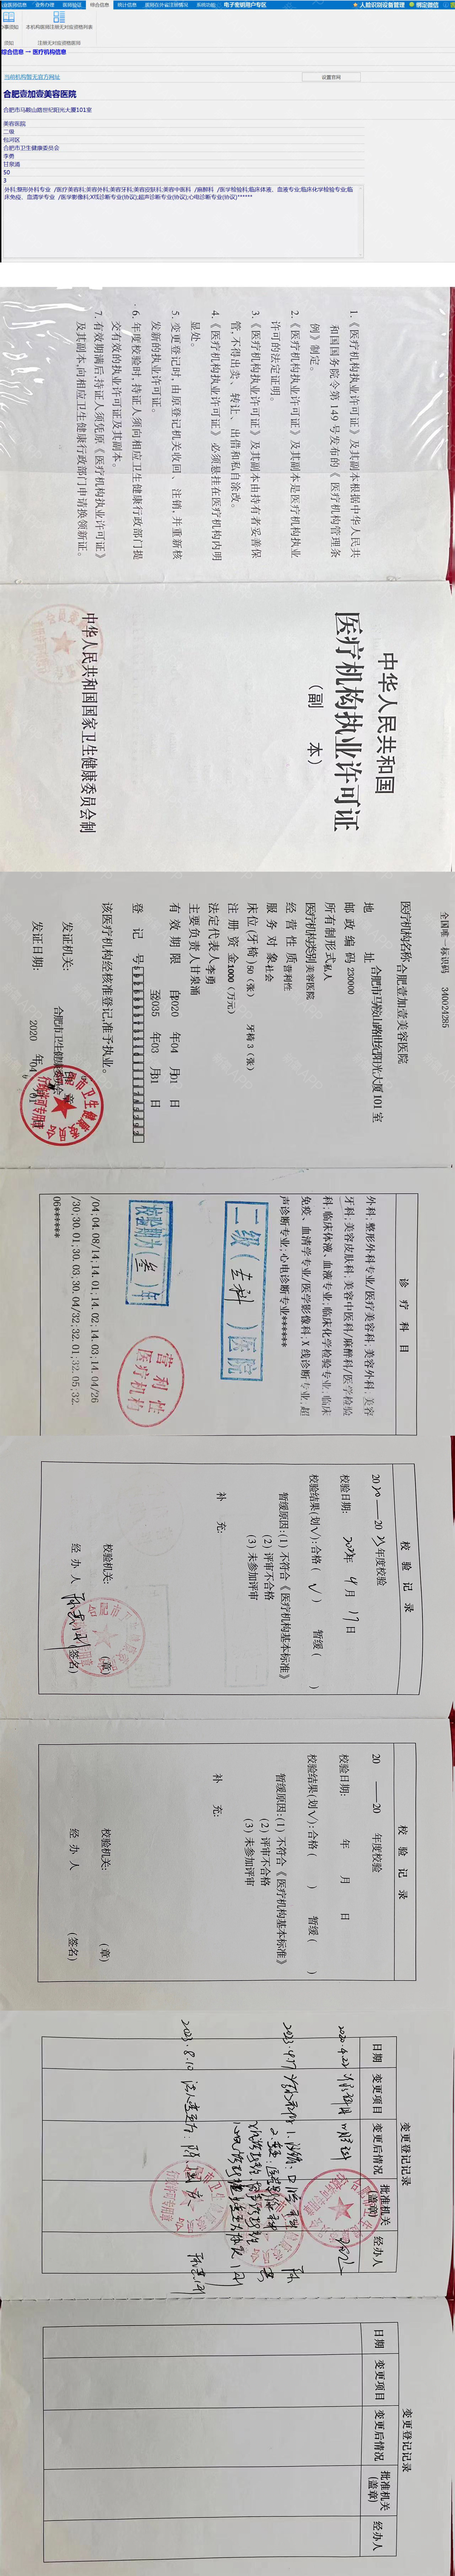 业务办理
医师验证
综合信息
统计信息
系统功能
电子软航用户专区
人脸识别设备管理
绑定微信
综合信息 → 医疗机构信息
当前机构暂无官方网址
设置官网
合肥壹加壹美容医院
合肥市马鞍山路世纪阳光大厦101室
美容医院
二级
包河区
合肥市卫生健康委员会
李勇
甘泉涌
50
3
外科;整形外科专业 /医疗美容科;美容外科;美容牙科;美容皮肤科;美容中医科 /麻醉科 /医学检验科;临床体液、血液专业;临床化学检验专业;临
床免疫、血清学专业 /医学影像科;X线诊断专业(协议);超声诊断专业(协议);心电诊断专业(协议)******
1.《医疗机构执业许可证》及其副本根据中华人民共
和国国务院令第149号发布的《医疗机构管理条
例》制定。
2.《医疗机构执业许可证》及其副本是医疗机构执业
许可的法定证明。
3.《医疗机构执业许可证》及其副本由持有者妥善保
管,不得出卖、转让、出借和私自涂改。
4.《医疗机构执业许可证》必须悬挂在医疗机构内明
显处。
5. 变更登记时,由原登记机关收回、注销,并重新核
发新的执业许可证。
6. 年度校验时,持证人须向相应卫生健康行政部门提
交有效的执业许可证及其副本。
7. 有效期满后,持证人须凭原《医疗机构执业许可证》
及其副本,向相应卫生健康行政部门申请换领新证。
中华人民共和国
医疗机构执业许可证
（副 本）
中华人民共和国国家卫生健康委员会制
全国唯一标识码 340024285
医疗机构名称 合肥壹加壹美容医院
地 址 合肥市马鞍山路世纪阳光大厦101室
邮政编码 230000
所有制形式 私人
医疗机构类别 美容医院
经营性质 营利性
服务对象 社会
床位(牙椅) 50（张） 牙椅 3（张）
注册资金 1000（万元）
法定代表人 李勇
主要负责人 甘泉涌
有效期限 自2020 年04 月01 日
至2035 年03 月31 日
登记号
该医疗机构经核准登记,准予执业。
发证机关: 合肥市卫生健康委员会
发证日期: 2020 年04 月01 日
诊疗科目
外科;整形外科专业/医疗美容科;美容外科;美容
牙科;美容皮肤科;美容中医科/麻醉科/医学检验
科;临床体液、血液专业;临床化学检验专业;临床
免疫、血清学专业/医学影像科;X线诊断专业;超
声诊断专业;心电诊断专业******
二级（专科）医院
校验期为（叁）年
营利性
医疗机构
/04;04.08/14;14.01;14.02;14.03;14.04/26
/30;30.01;30.03;30.04/32;32.01;32.05;32.
06******
校验记录
2020——2023年度校验
校验日期: 年4月17日
校验结果(划√):合格（√） 暂缓（ ）
暂缓原因:(1) 不符合《医疗机构基本标准》
(2) 评审不合格
(3) 未参加评审
补 充:
校验机关: （章）
经办人 （签名）
校验记录
20 ——20 年度校验
校验日期: 年 月 日
校验结果(划√):合格（ ） 暂缓（ ）
暂缓原因:(1) 不符合《医疗机构基本标准》
(2) 评审不合格
(3) 未参加评审
补 充:
校验机关: （章）
经办人 （签名）
变更登记记录
日期 变更项目 变更后情况 批准机关(盖章) 经办人
2023.8.10
变更登记记录
日期 变更项目 变更后情况 批准机关(盖章) 经办人